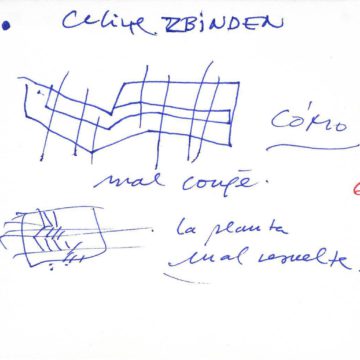 • Celine ZBINDEN
CÓMO
mal coupé.
la planta
mal resuelta.